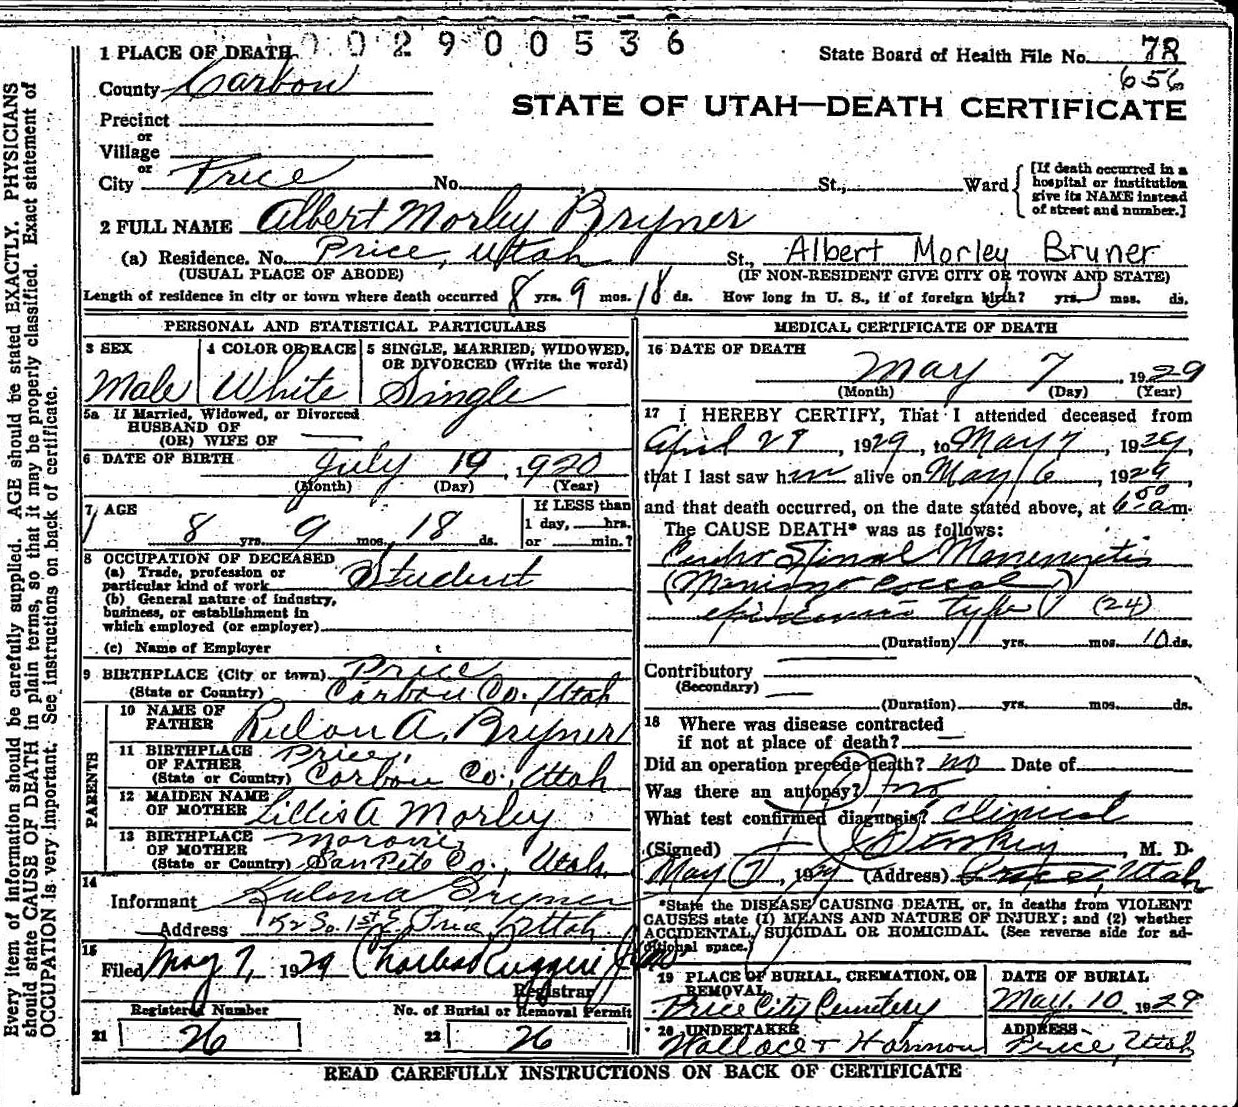 0 0 2 9 0 0 5 3 6
1 PLACE OF DEATH
State Board of Health File No. 78
656
County Carbon
STATE OF UTAH—DEATH CERTIFICATE
Precinct
or
Village
or
City Price No. St., Ward
[If death occurred in a hospital or institution give its NAME instead of street and number.]
2 FULL NAME Albert Morley Bryner
(a) Residence. No. Price, Utah St., Albert Morley Bryner
(USUAL PLACE OF ABODE) (IF NON-RESIDENT GIVE CITY OR TOWN AND STATE)
Length of residence in city or town where death occurred 8 yrs. 9 mos. 18 ds. How long in U. S., if of foreign birth? yrs. mos. ds.
PERSONAL AND STATISTICAL PARTICULARS
3 SEX Male
4 COLOR OR RACE White
5 SINGLE, MARRIED, WIDOWED, OR DIVORCED (Write the word) Single
5a If Married, Widowed, or Divorced
HUSBAND OF
(OR) WIFE OF
6 DATE OF BIRTH July 19, 1920
(Month) (Day) (Year)
7 AGE 8 yrs. 9 mos. 18 ds.
If LESS than
1 day, hrs.
or min.?
8 OCCUPATION OF DECEASED
(a) Trade, profession or
particular kind of work Student
(b) General nature of industry,
business, or establishment in
which employed (or employer)
(c) Name of Employer
9 BIRTHPLACE (City or town) Price
(State or Country) Carbon Co. Utah
PARENTS
10 NAME OF
FATHER Rulon A. Bryner
11 BIRTHPLACE
OF FATHER Price,
(State or Country) Carbon Co., Utah
12 MAIDEN NAME
OF MOTHER Lillis A Morley
13 BIRTHPLACE
OF MOTHER Moroni,
(State or Country) San Pete Co., Utah.
14
Informant Bryner
Address So. 1st E Price, Utah
15
Filed May 7, 1929
Registrar
Registered Number
No. of Burial or Removal Permit
21 26
22 26
MEDICAL CERTIFICATE OF DEATH
16 DATE OF DEATH
May 7, 1929
(Month) (Day) (Year)
17 I HEREBY CERTIFY, That I attended deceased from
April 29, 1929, to May 7, 1929,
that I last saw him alive on May 6, 1929,
and that death occurred, on the date stated above, at 6:00 am.
The CAUSE DEATH* was as follows:
Spinal Meningitis
epidemic type (24)
(Duration) yrs. mos. 10 ds.
Contributory
(Secondary)
(Duration) yrs. mos. ds.
18 Where was disease contracted
if not at place of death?
Did an operation precede death? no Date of
Was there an autopsy? no
What test confirmed diagnosis? Clinical
(Signed) M. D.
May 7, 1929 (Address) Price, Utah
*State the DISEASE CAUSING DEATH, or, in deaths from VIOLENT
CAUSES state (1) MEANS AND NATURE OF INJURY; and (2) whether
ACCIDENTAL, SUICIDAL OR HOMICIDAL. (See reverse side for ad-
ditional space.)
19 PLACE OF BURIAL, CREMATION, OR
REMOVAL
Price City Cemetery
DATE OF BURIAL
May. 10 1929
20 UNDERTAKER
Wallace & Harmon
ADDRESS
Price, Utah
READ CAREFULLY INSTRUCTIONS ON BACK OF CERTIFICATE
Every item of information should be carefully supplied. AGE should be stated EXACTLY. PHYSICIANS
should state CAUSE OF DEATH in plain terms, so that it may be properly classified. Exact statement of
OCCUPATION is very important. See instructions on back of certificate.